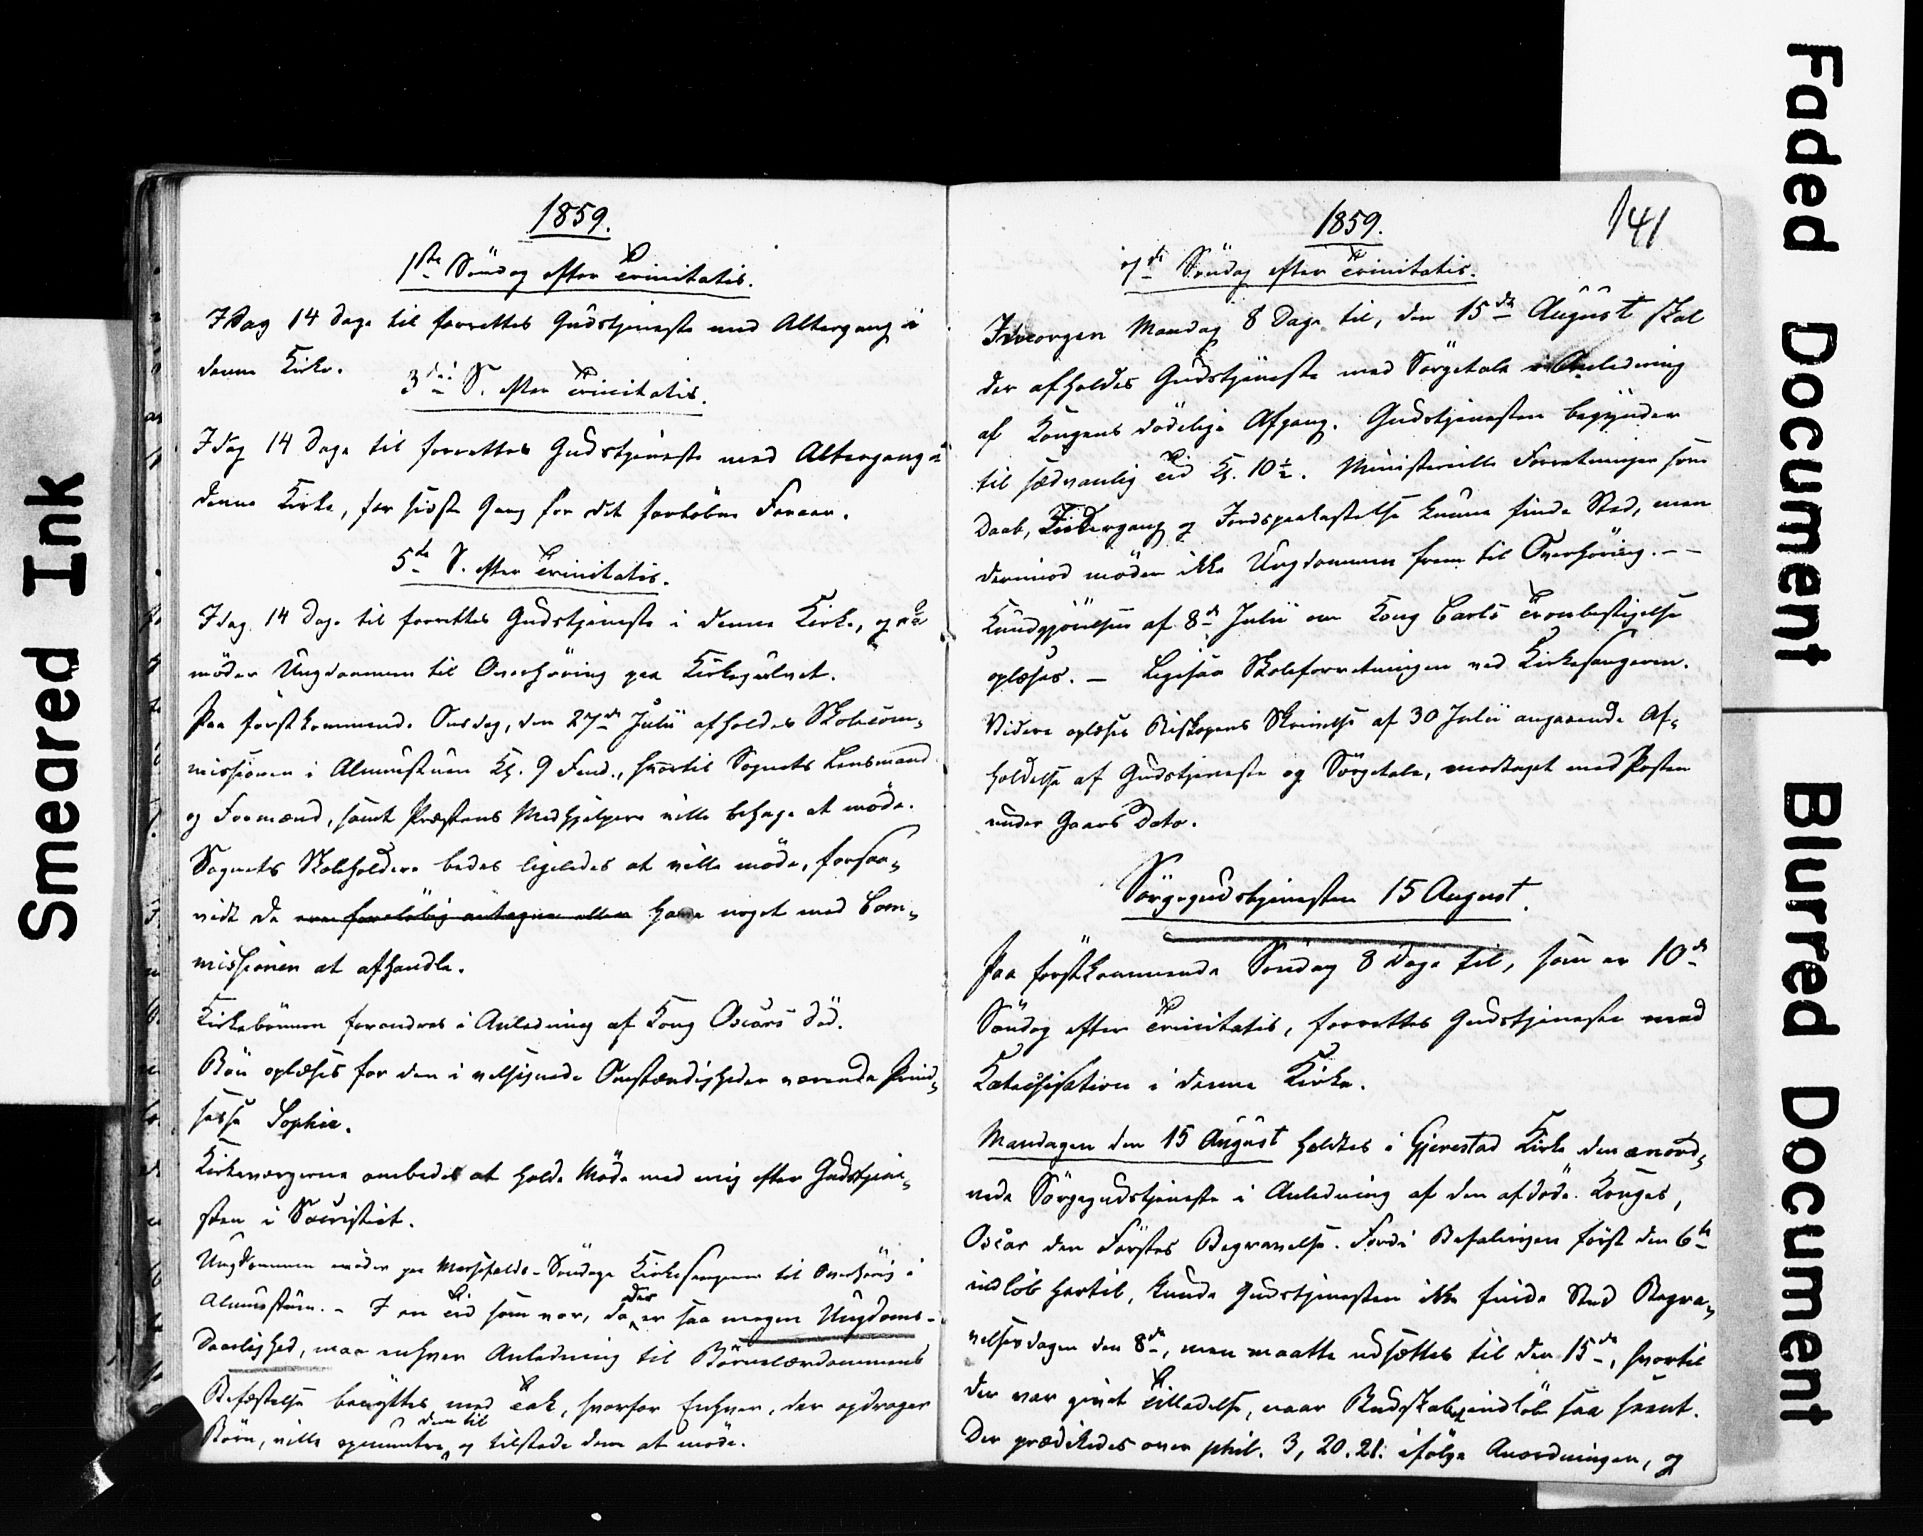 1859.
1ste Söndag efter Trinitatis.
Idag 14 Dage til forrettes Gudstjeneste med Altergang i
denne Kirke.
3die S. efter Trinitatis.
Idag 14 Dage til forrettes Gudstjeneste med Altergang i
denne Kirke, for sidste Gang for det forløbne Foraar.
5te S. efter Trinitatis.
Idag 14 Dage til forrettes Gudstjeneste i denne Kirke, og da
möder Ungdommen til Overhöring paa Kirkegulvet.
Paa förstkommende Onsdag, den 27de Julii afholdes Skolecom-
missionen i Almuestuen Kl. 9 Form., hvortil Sognets Lensmand
og Formænd, samt Præstens Medhjelpere ville behage at möde.
Sognets Skoleholdere bedes ligeledes at ville möde, forsaa-
vidt de ere foreløbig antagne eller have noget med Com-
missionen at afhandle.
Kirkebönnen forandres i Anledning af Kong Oscars Död.
Bön oplæses for den i velsignede Omstændigheder værende Prind-
sesse Sophie.
Kirkeværgerne ombedes at holde Möde med mig efter Gudstjene-
sten i Sacristiet.
Ungdommen möder paa Messefalds-Söndage Kirkesangeren til Overhöring i
Almuestuen. - I en Tid som vor, da der er saa megen Ungdoms-
Daarlighed, maa enhver Anledning til Börnelærdommens
Befæstelse benyttes med Tak, hvorfor Enhver, der opdrager
Börn, ville opmuntre dem til og tilstede dem at möde.
1859.
141
7de Söndag efter Trinitatis.
Imorgen Mandag 8 Dage til, den 15de August skal
der afholdes Gudstjeneste med Sörgetale i Anledning
af Kongens dödelige Afgang. Gudstjenesten begynder
til sædvanlig Tid Kl. 10½. Ministerielle Forretninger som
Daab, Kirkegang og Jordspaakastelse kunne finde Sted, men
derimod möder ikke Ungdommen frem til Overhöring. - -
Kundgjörelsen af 8de Julii om Kong Carls Tronbestigelse
oplæses. - Ligesaa Skoleforretningen ved Kirkesangeren.
Videre oplæses Biskopens Skrivelse af 30 Julii angaaende Af-
holdelse af Gudstjeneste og Sörgetale, modtaget med Posten
under Gaars Dato.
Sörgegudstjenesten 15 August.
Paa förstkommende Söndag 8 Dage til, som er 10de
Söndag efter Trinitatis, forrettes Gudstjeneste med
Katechisation i denne Kirke.
Mandagen den 15 August holdtes i Gjerestad Kirke den anord-
nede Sörgegudstjeneste i Anledning af den afdöde Konges,
Oscar den Förstes Begravelse. Fordi Befalingen först den 6te
indlöb hertil, kunde Gudstjenesten ikke finde Sted Begra-
velsesdagen den 8de, men maatte udsættes til den 15de, hvortil
der var givet Tilladelse, naar Budskabet indlöb saa seent.
Der prædikedes over Phil. 3, 20.21. ifölge Anordningen, og